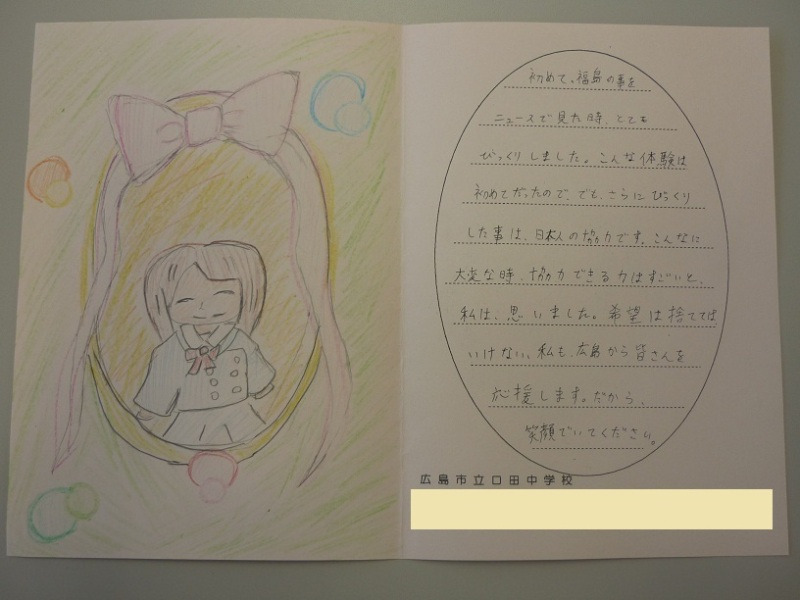 初めて、福島の事を
ニュースで見た時、とても
びっくりしました。こんな体験は
初めてだったので、でも、さらにびっくり
した事は、日本人の協力です。こんなに
大変な時、協力できる力はすごいと、
私は、思いました。希望は捨てては
いけない、私も、広島から皆さんを
応援します。だから、
笑顔でいてください。
広島市立口田中学校